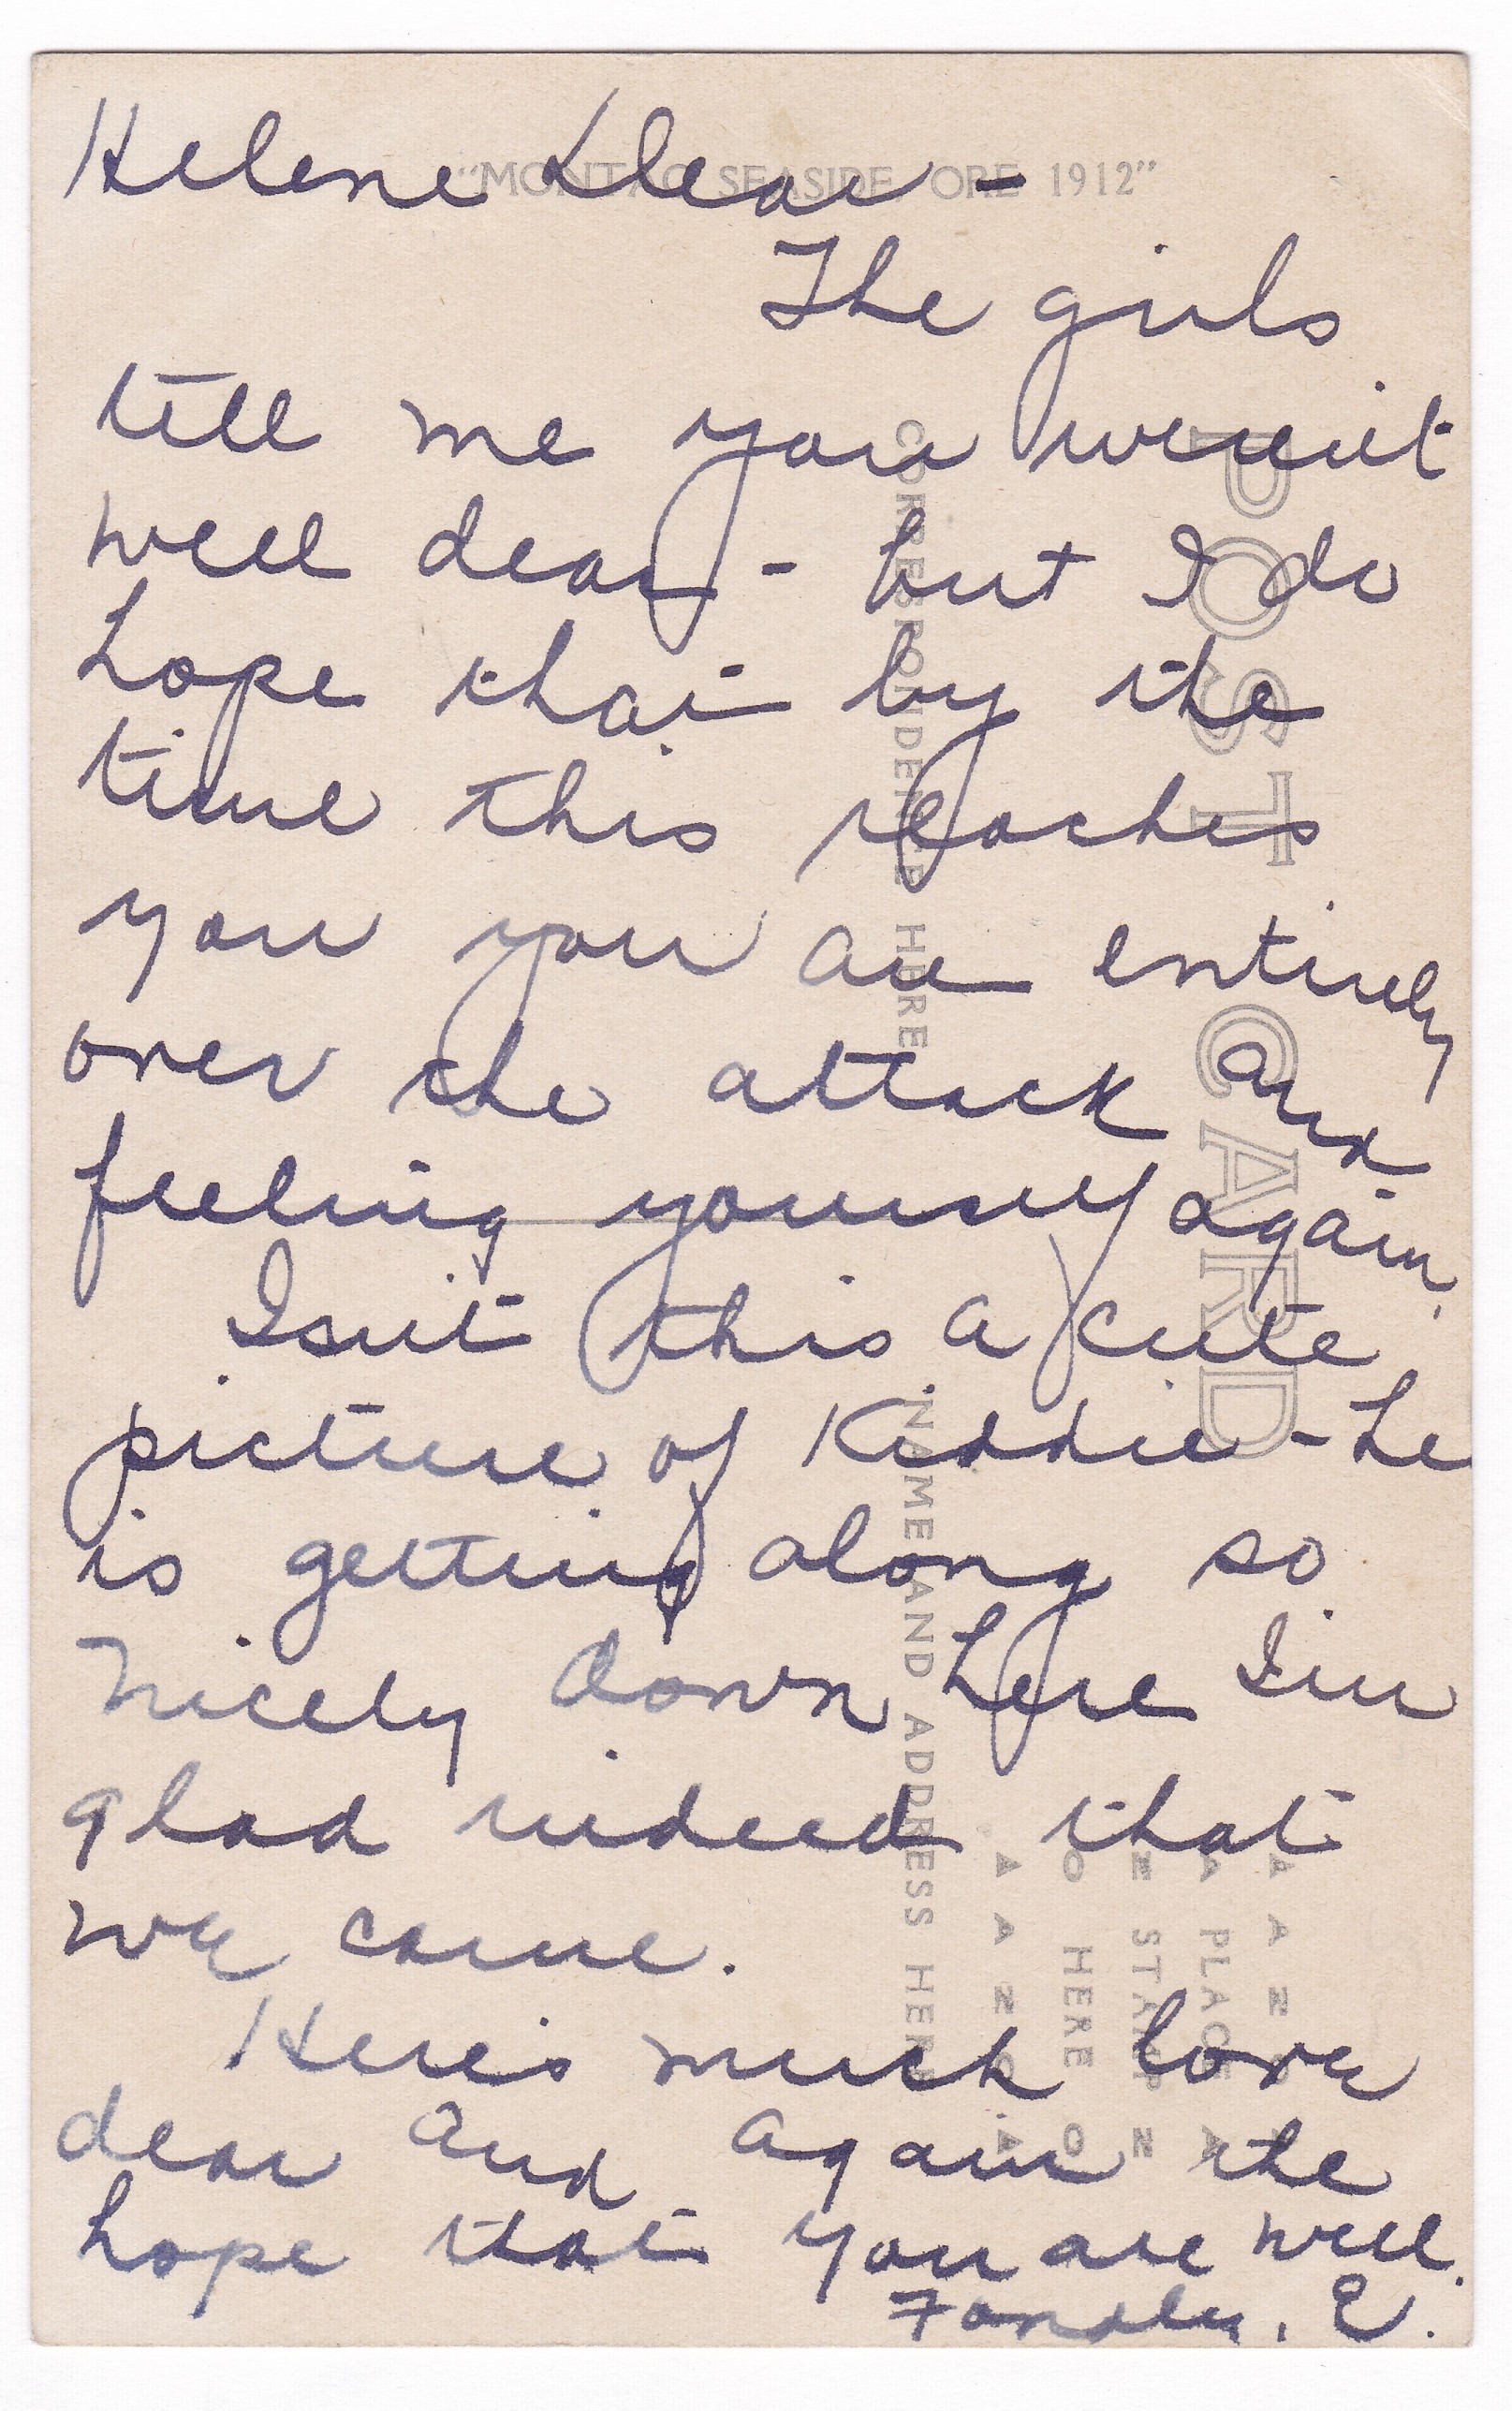 "MONTAG SEASIDE, ORE 1912"
Helene Dear -
The girls
tell me you weren't
well dear - but I do
hope that by the
time this reaches
you you are entirely
over the attack and
feeling yourself again.
Isn't this a cute
picture of Kiddie - he
is getting along so
nicely down here I'm
glad indeed that
we came.
Here's much love
dear and again the
hope that you are well.
Fondly, E.
POST CARD
CORRESPONDENCE HERE
NAME AND ADDRESS HERE
PLACE
STAMP
HERE